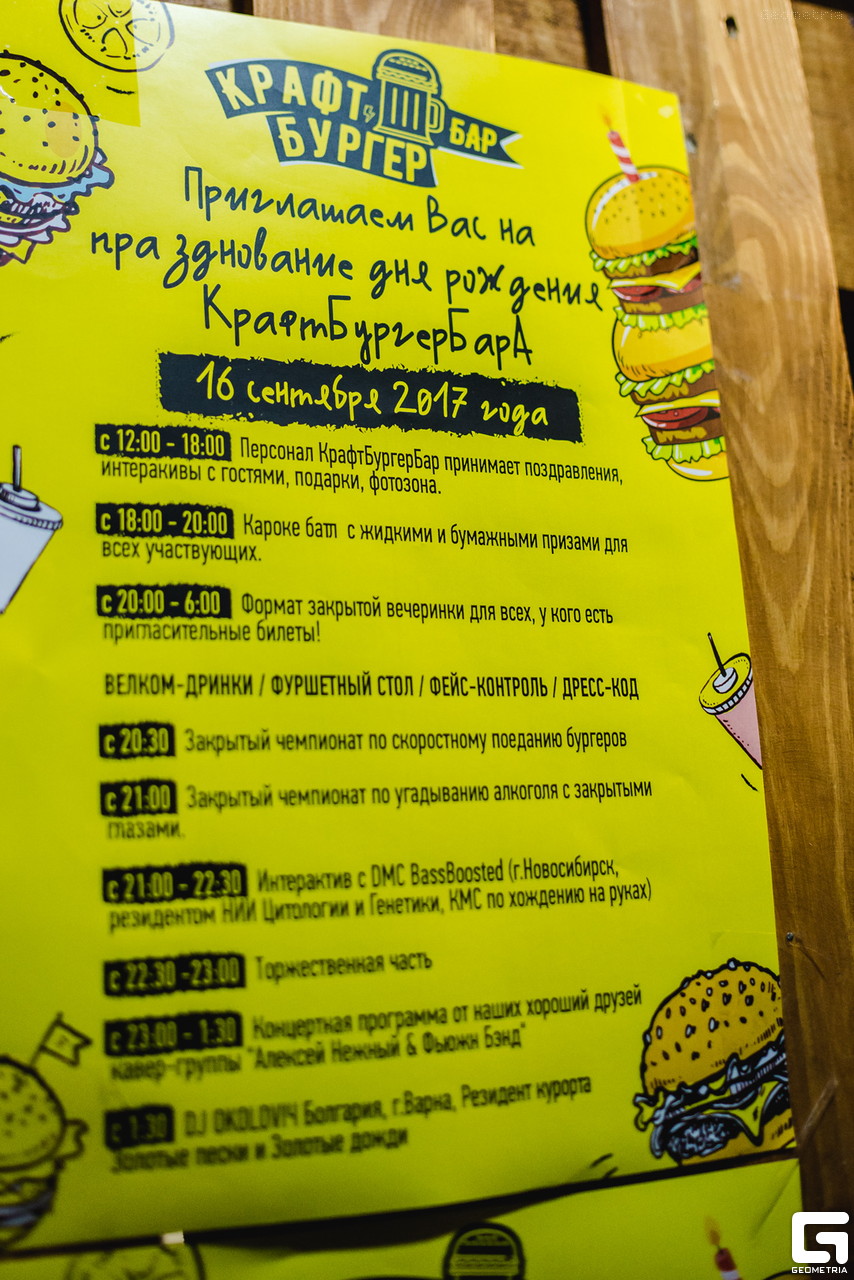 Geometria
КРАФТ
БУРГЕР
БАР
Приглашаем Вас на
празднование дня рождения
КрафтБургерБарА
16 сентября 2017 года
с 12:00 - 18:00 Персонал КрафтБургерБар принимает поздравления,
интеракивы с гостями, подарки, фотозона.
с 18:00 - 20:00 Кароке батл с жидкими и бумажными призами для
всех участвующих.
с 20:00 - 6:00 Формат закрытой вечеринки для всех, у кого есть
пригласительные билеты!
ВЕЛКОМ-ДРИНКИ / ФУРШЕТНЫЙ СТОЛ / ФЕЙС-КОНТРОЛЬ / ДРЕСС-КОД
с 20:30 Закрытый чемпионат по скоростному поеданию бургеров
с 21:00 Закрытый чемпионат по угадыванию алкоголя с закрытыми
глазами.
с 21:00 - 22:30 Интерактив с DMC BassBoosted (г.Новосибирск,
резидентом НИИ Цитологии и Генетики, КМС по хождению на руках)
с 22:30 -23:00 Торжественная часть
с 23:00 - 1:30 Концертная программа от наших хороший друзей
кавер-группы "Алексей Нежный & Фьюжн Бэнд"
с 1:30 DJ OKOLOVI4 Болгария, г.Варна, Резидент курорта
Золотые пески и Золотые дожди
GEOMETRIA